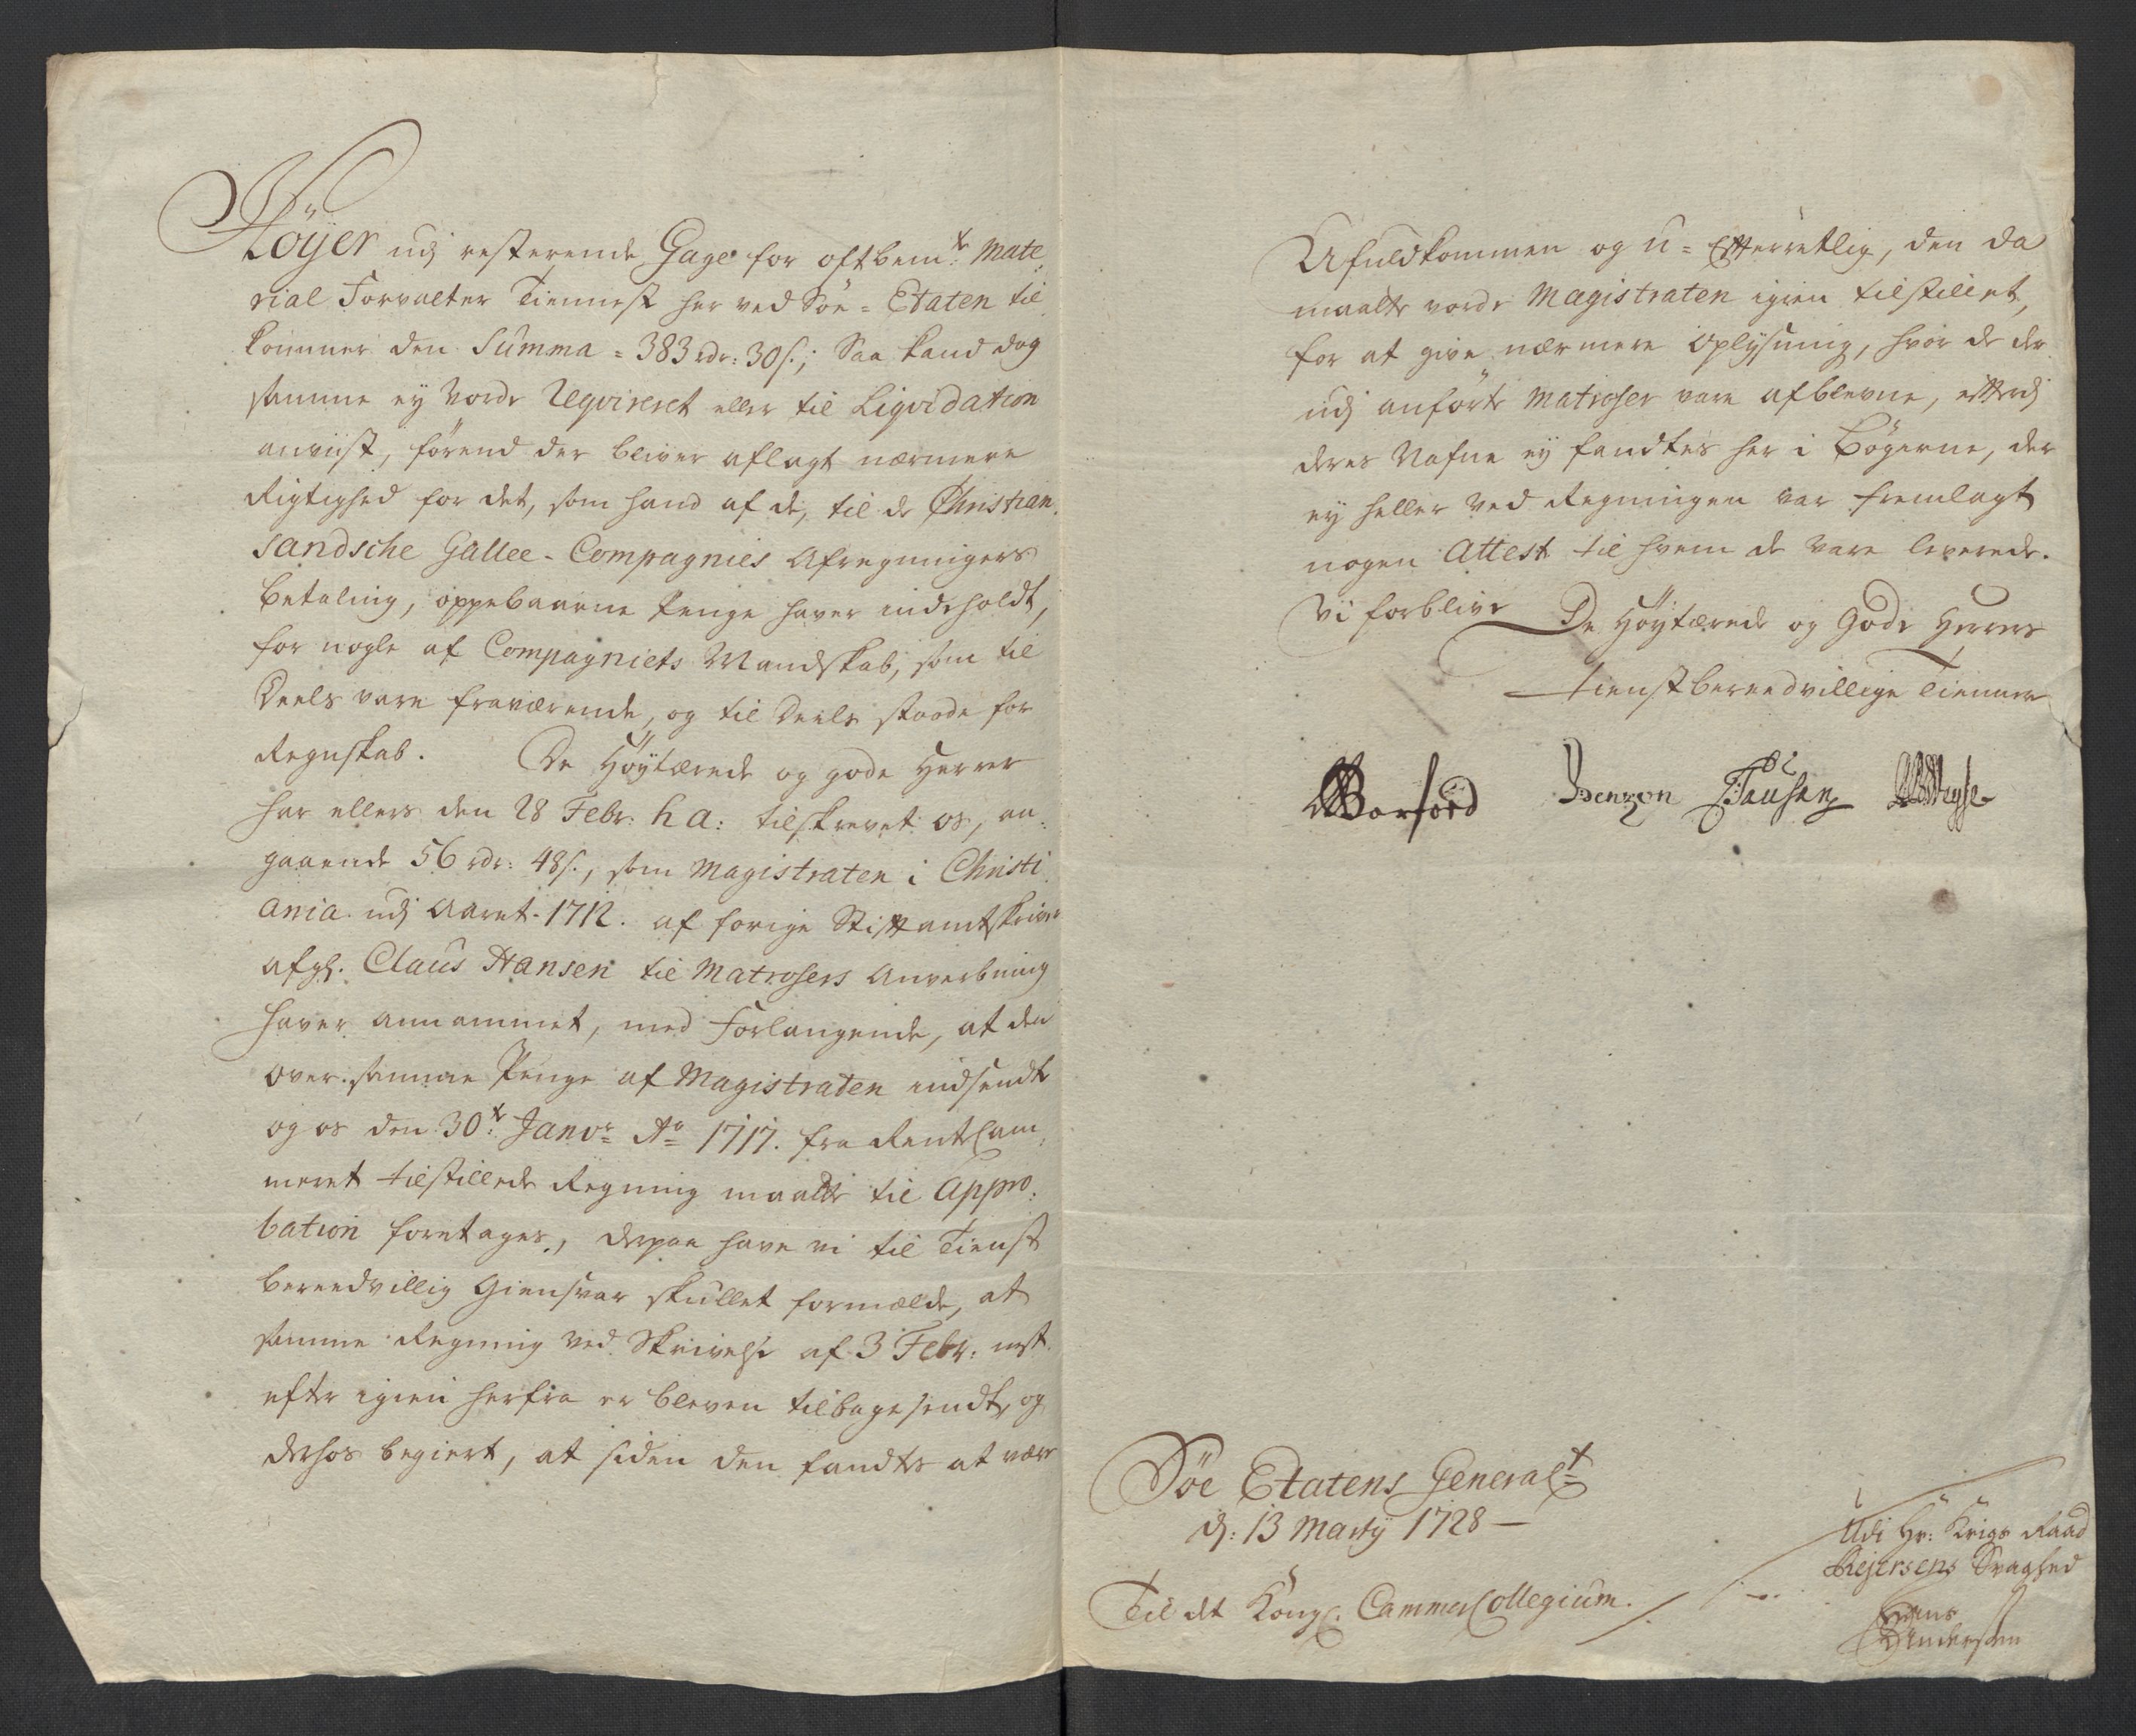 Höyer udj resterende Gage for oftbem.te Mate,
rial Forvalter Tienneste her ved Söe=Etaten til
kommer den Summa = 383 rdr: 30 s.; Saa kand dog
samme ey vorde Reqvireret eller til Liqvidation
anviist, förend der bliver aflagt nærmere
Rigtighed for det, som hand af de, til de Christian,
sandsche Gallee-Compagnies Afregningers
betaling, oppebaarne Penge haver indeholdt,
for nogle af Compagniets Mandskab, som til
Deels vare fraværende, og til Deels stoode for
Regnskab. De Höytærede og gode Herrer
har ellers den 28 Febr: h a: tilskrevet os, an,
gaaende 56 rdr: 48 s., som Magistraten i Christi,
ania udj Aaret 1712. af forige Stiftamtskriver
afg. Claus Hansen til Matrosers Anverbning
haver annammet, med Forlangende, at den
over samme Penge af Magistraten indsendte
og os den 30te Janv: Ao 1717. fra RentCam,
meret tilstillede Regning maatte til Appro,
bation foretages, derpaa have vi til Tienst
bereedvillig Giensvar skullet formælde, at
samme Regning ved Skrivelse af 3 Febr: nest
efter igien herfra er bleven tilbagesendt, og
derhos begiert, at siden den fandtes at være
Ufuldkommen og U=Efterretlig, den da
maatte vorde Magistraten igien tilstillet,
for at give nærmere Oplysning, hvor de der
udj anförte Matroser vare afblevne, efterdj
deres Nafne ey fandtes her i Bögerne, der
ey heller ved Regningen var fremlagt
nogen Attest til hvem de vare leverede.
Vi forblive De Höytærede og Gode Herrers
tienstbereedvillige Tienere
Borford Benzon Tausan
Söe Etatens General
d: 13 Martij 1728
Til det Kongl. CammerCollegium.
Udi Hr: Krigs Raad
Rejersens Svaghed
Hans
Andersen